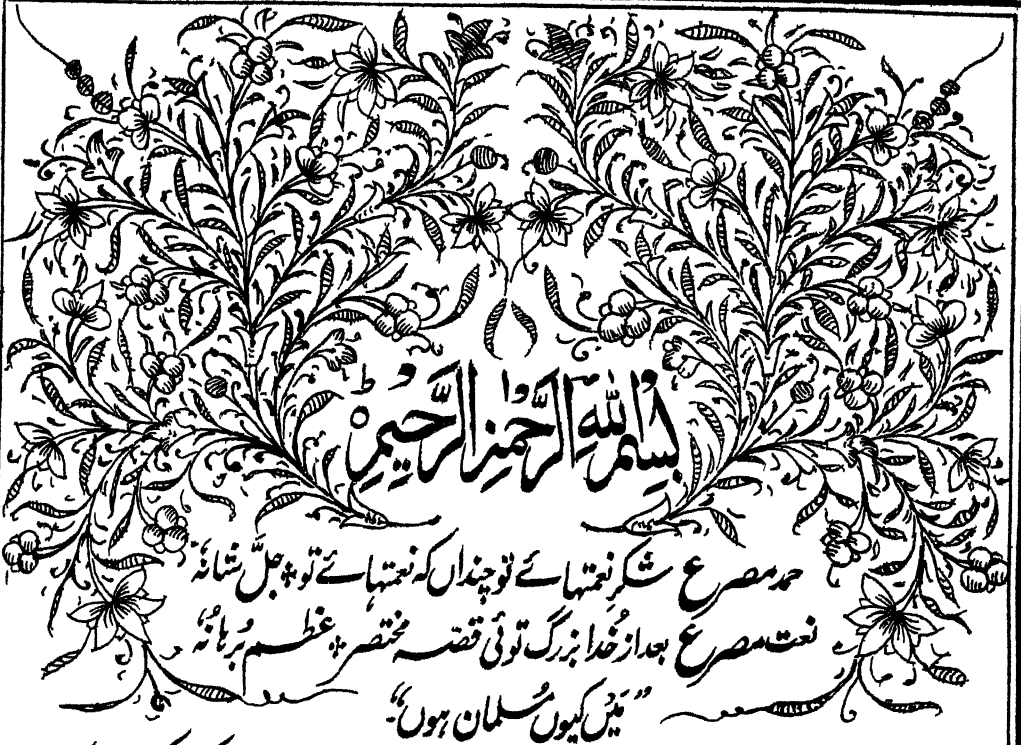 بِسْمِ اللهِ الرَّحْمٰنِ الرَّحِيْمِ ط
حمد مصرع شکرِ نعمتہائے تو چنداں کہ نعمتہائے تو ؞ جلَّ شانہٗ
نعت مصرع بعد از خُدا بزرگ توئی قصّہ مختصر ؞ عظم بُرہانُہٗ
"مَیں کیوں مُسلمان ہوں"۔